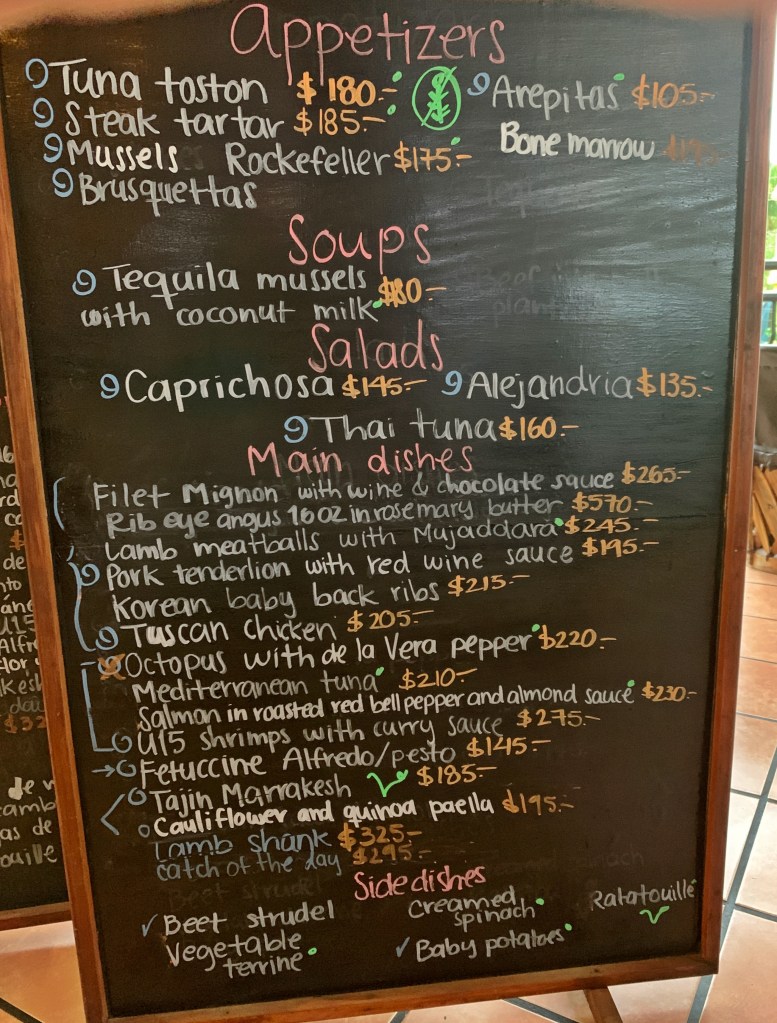 Appetizers
Tuna toston $180.-
Steak tartar $185.-
Mussels Rockefeller $175.-
Brusquettas
Arepitas $105.-
Bone marrow
Soups
Tequila mussels
with coconut milk $80.-
Salads
Caprichosa $145.- Alejandria $135.-
Thai tuna $160.-
Main dishes
Filet Mignon with wine & chocolate sauce $265.-
Rib eye angus 16oz in rosemary butter $570.-
Lamb meatballs with Mujaddara $245.-
Pork tenderlion with red wine sauce $195.-
Korean baby back ribs $215.-
Tuscan Chicken $205.-
Octopus with de la Vera pepper $220.-
Mediterranean tuna $210.-
Salmon in roasted red bell pepper and almond sauce $230.-
U15 shrimps with curry sauce $275.-
Fetuccine Alfredo/pesto $145.-
Tajin Marrakesh $185.-
Cauliflower and quinoa paella $195.-
Lamb shank $325-
catch of the day $295.-
Side dishes
Beet strudel
Vegetable
terrine
Creamed
spinach
Baby potatoes
Ratatouille